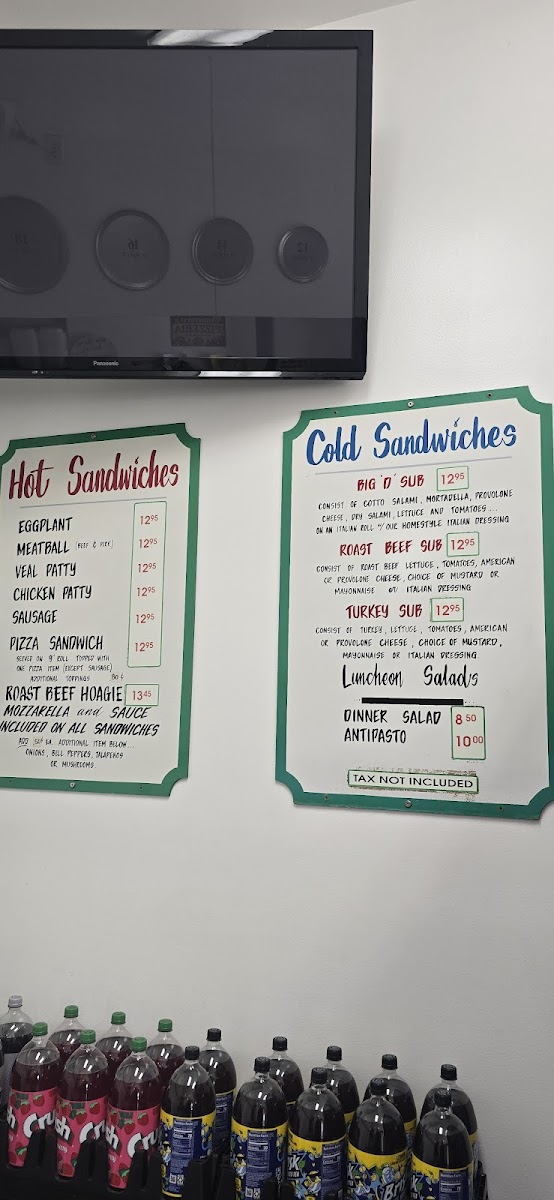 Panasonic
Hot Sandwiches
EGGPLANT 12⁹⁵
MEATBALL (BEEF & PORK) 12⁹⁵
VEAL PATTY 12⁹⁵
CHICKEN PATTY 12⁹⁵
SAUSAGE 12⁹⁵
PIZZA SANDWICH 12⁹⁵
SERVED ON 9" ROLL TOPPED WITH
ONE PIZZA ITEM (EXCEPT SAUSAGE)
ADDITIONAL TOPPINGS 80¢
ROAST BEEF HOAGIE 13⁴⁵
MOZZARELLA and SAUCE
INCLUDED ON ALL SANDWICHES
ADD EA. ADDITIONAL ITEM BELOW...
ONIONS, BELL PEPPERS, JALAPEÑOS
OR MUSHROOMS
Cold Sandwiches
BIG 'D' SUB 12⁹⁵
CONSIST OF COTTO SALAMI, MORTADELLA, PROVOLONE
CHEESE, DRY SALAMI, LETTUCE AND TOMATOES...
ON AN ITALIAN ROLL W/ OUR HOMESTYLE ITALIAN DRESSING
ROAST BEEF SUB 12⁹⁵
CONSIST OF ROAST BEEF LETTUCE, TOMATOES, AMERICAN
OR PROVOLONE CHEESE, CHOICE OF MUSTARD OR
MAYONNAISE or ITALIAN DRESSING
TURKEY SUB 12⁹⁵
CONSIST OF TURKEY, LETTUCE, TOMATOES, AMERICAN
OR PROVOLONE CHEESE, CHOICE OF MUSTARD,
MAYONNAISE OR ITALIAN DRESSING
Luncheon Salads
DINNER SALAD 8⁵⁰
ANTIPASTO 10⁰⁰
TAX NOT INCLUDED
Crush